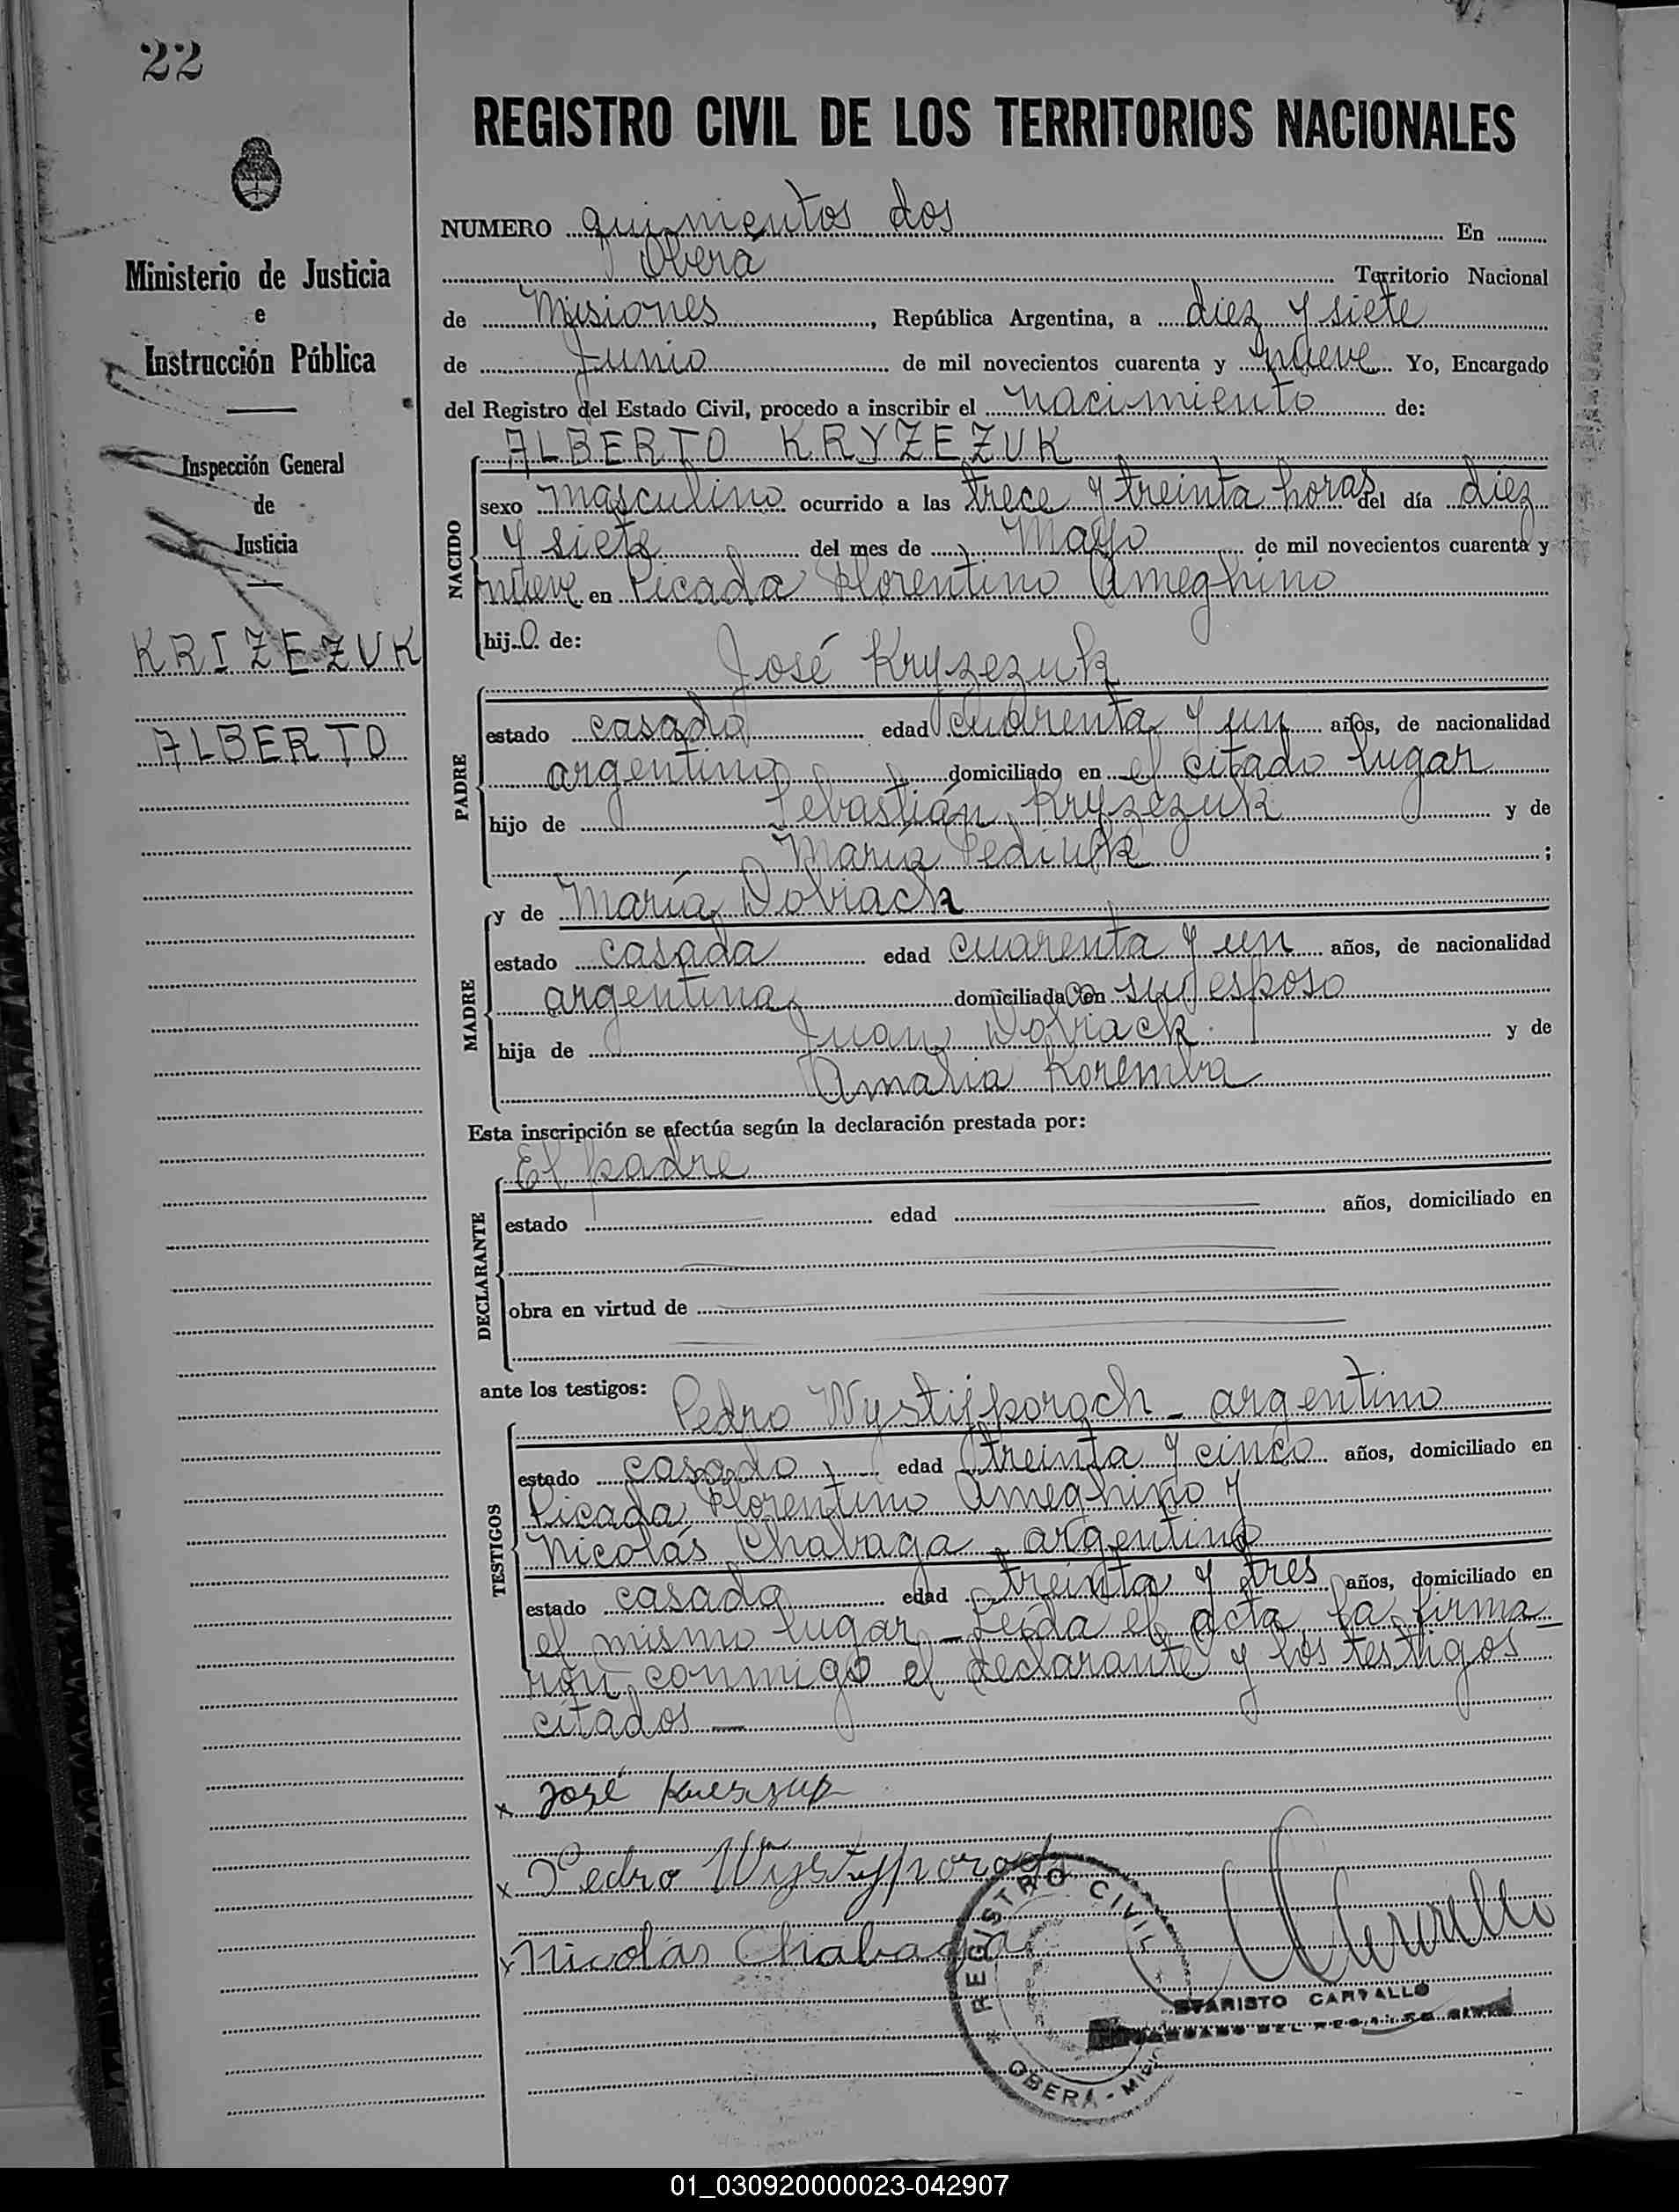 22
REGISTRO CIVIL DE LOS TERRITORIOS NACIONALES
Ministerio de Justicia
e
Instrucción Pública
Inspección General
de
Justicia
KRIZEZUK
ALBERTO
NUMERO quinientos dos En
Oberá Territorio Nacional
de Misiones, República Argentina, a diez y siete
de Junio de mil novecientos cuarenta y nueve Yo, Encargado
del Registro del Estado Civil, procedo a inscribir el nacimiento de:
ALBERTO KRYZEZUK
NACIDO
sexo masculino ocurrido a las trece y treinta horas del día diez
y siete del mes de Mayo de mil novecientos cuarenta y
nueve en Picada Florentino Ameghino
hijo de:
José Kryzezuk
PADRE
estado casado edad cuarenta y un años, de nacionalidad
argentino domiciliado en el citado lugar
hijo de Sebastián Kryzezuk y de
María Pediuk ;
y de María Dobrack
MADRE
estado casada edad cuarenta y un años, de nacionalidad
argentina domiciliada con su esposo
hija de Juan Dobrack y de
Amalia Koremba
Esta inscripción se efectúa según la declaración prestada por:
El padre
DECLARANTE
estado edad años, domiciliado en
obra en virtud de
ante los testigos: Pedro Wystijporach - argentino
TESTIGOS
estado casado edad treinta y cinco años, domiciliado en
Picada Florentino Ameghino y
Nicolás Chabaga - argentino
estado casado edad treinta y tres años, domiciliado en
el mismo lugar - Leída el acta, la firma
ron conmigo el declarante y los testigos
citados -
x José
x Pedro Wystyporach
x Nicolás Chabaga
REGISTRO CIVIL
OBERÁ - MISIONES
EVARISTO CARVALLO
ENCARGADO DEL REGISTRO CIVIL
01_030920000023-042907